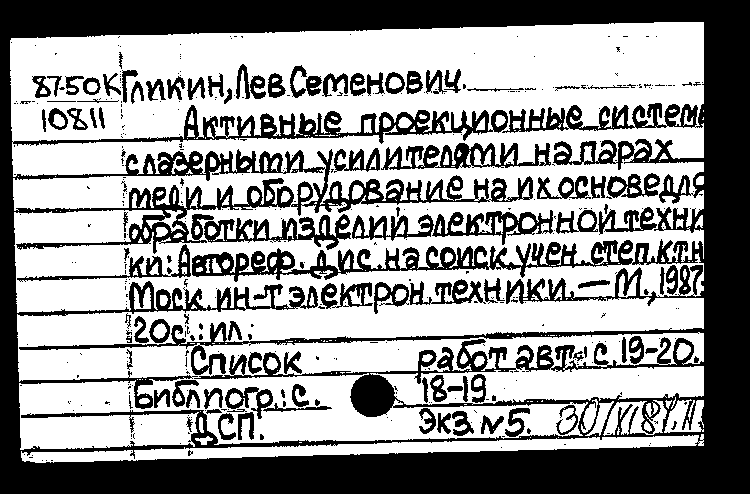 87-50К Гликин, Лев Семенович.
10811 Активные проекционные системы
с лазерными усилителями на парах
меди и оборудование на их основе для
обработки изделий электронной техни-
ки: Автореф. дис. на соиск. учен. степ. к.т.н.
Моск. ин-т электрон. техники. — М., 1987.
20с.: ил.
Список работ авт.: с. 19-20.
Библиогр.: с. 18-19.
ДСП. Экз. №5.